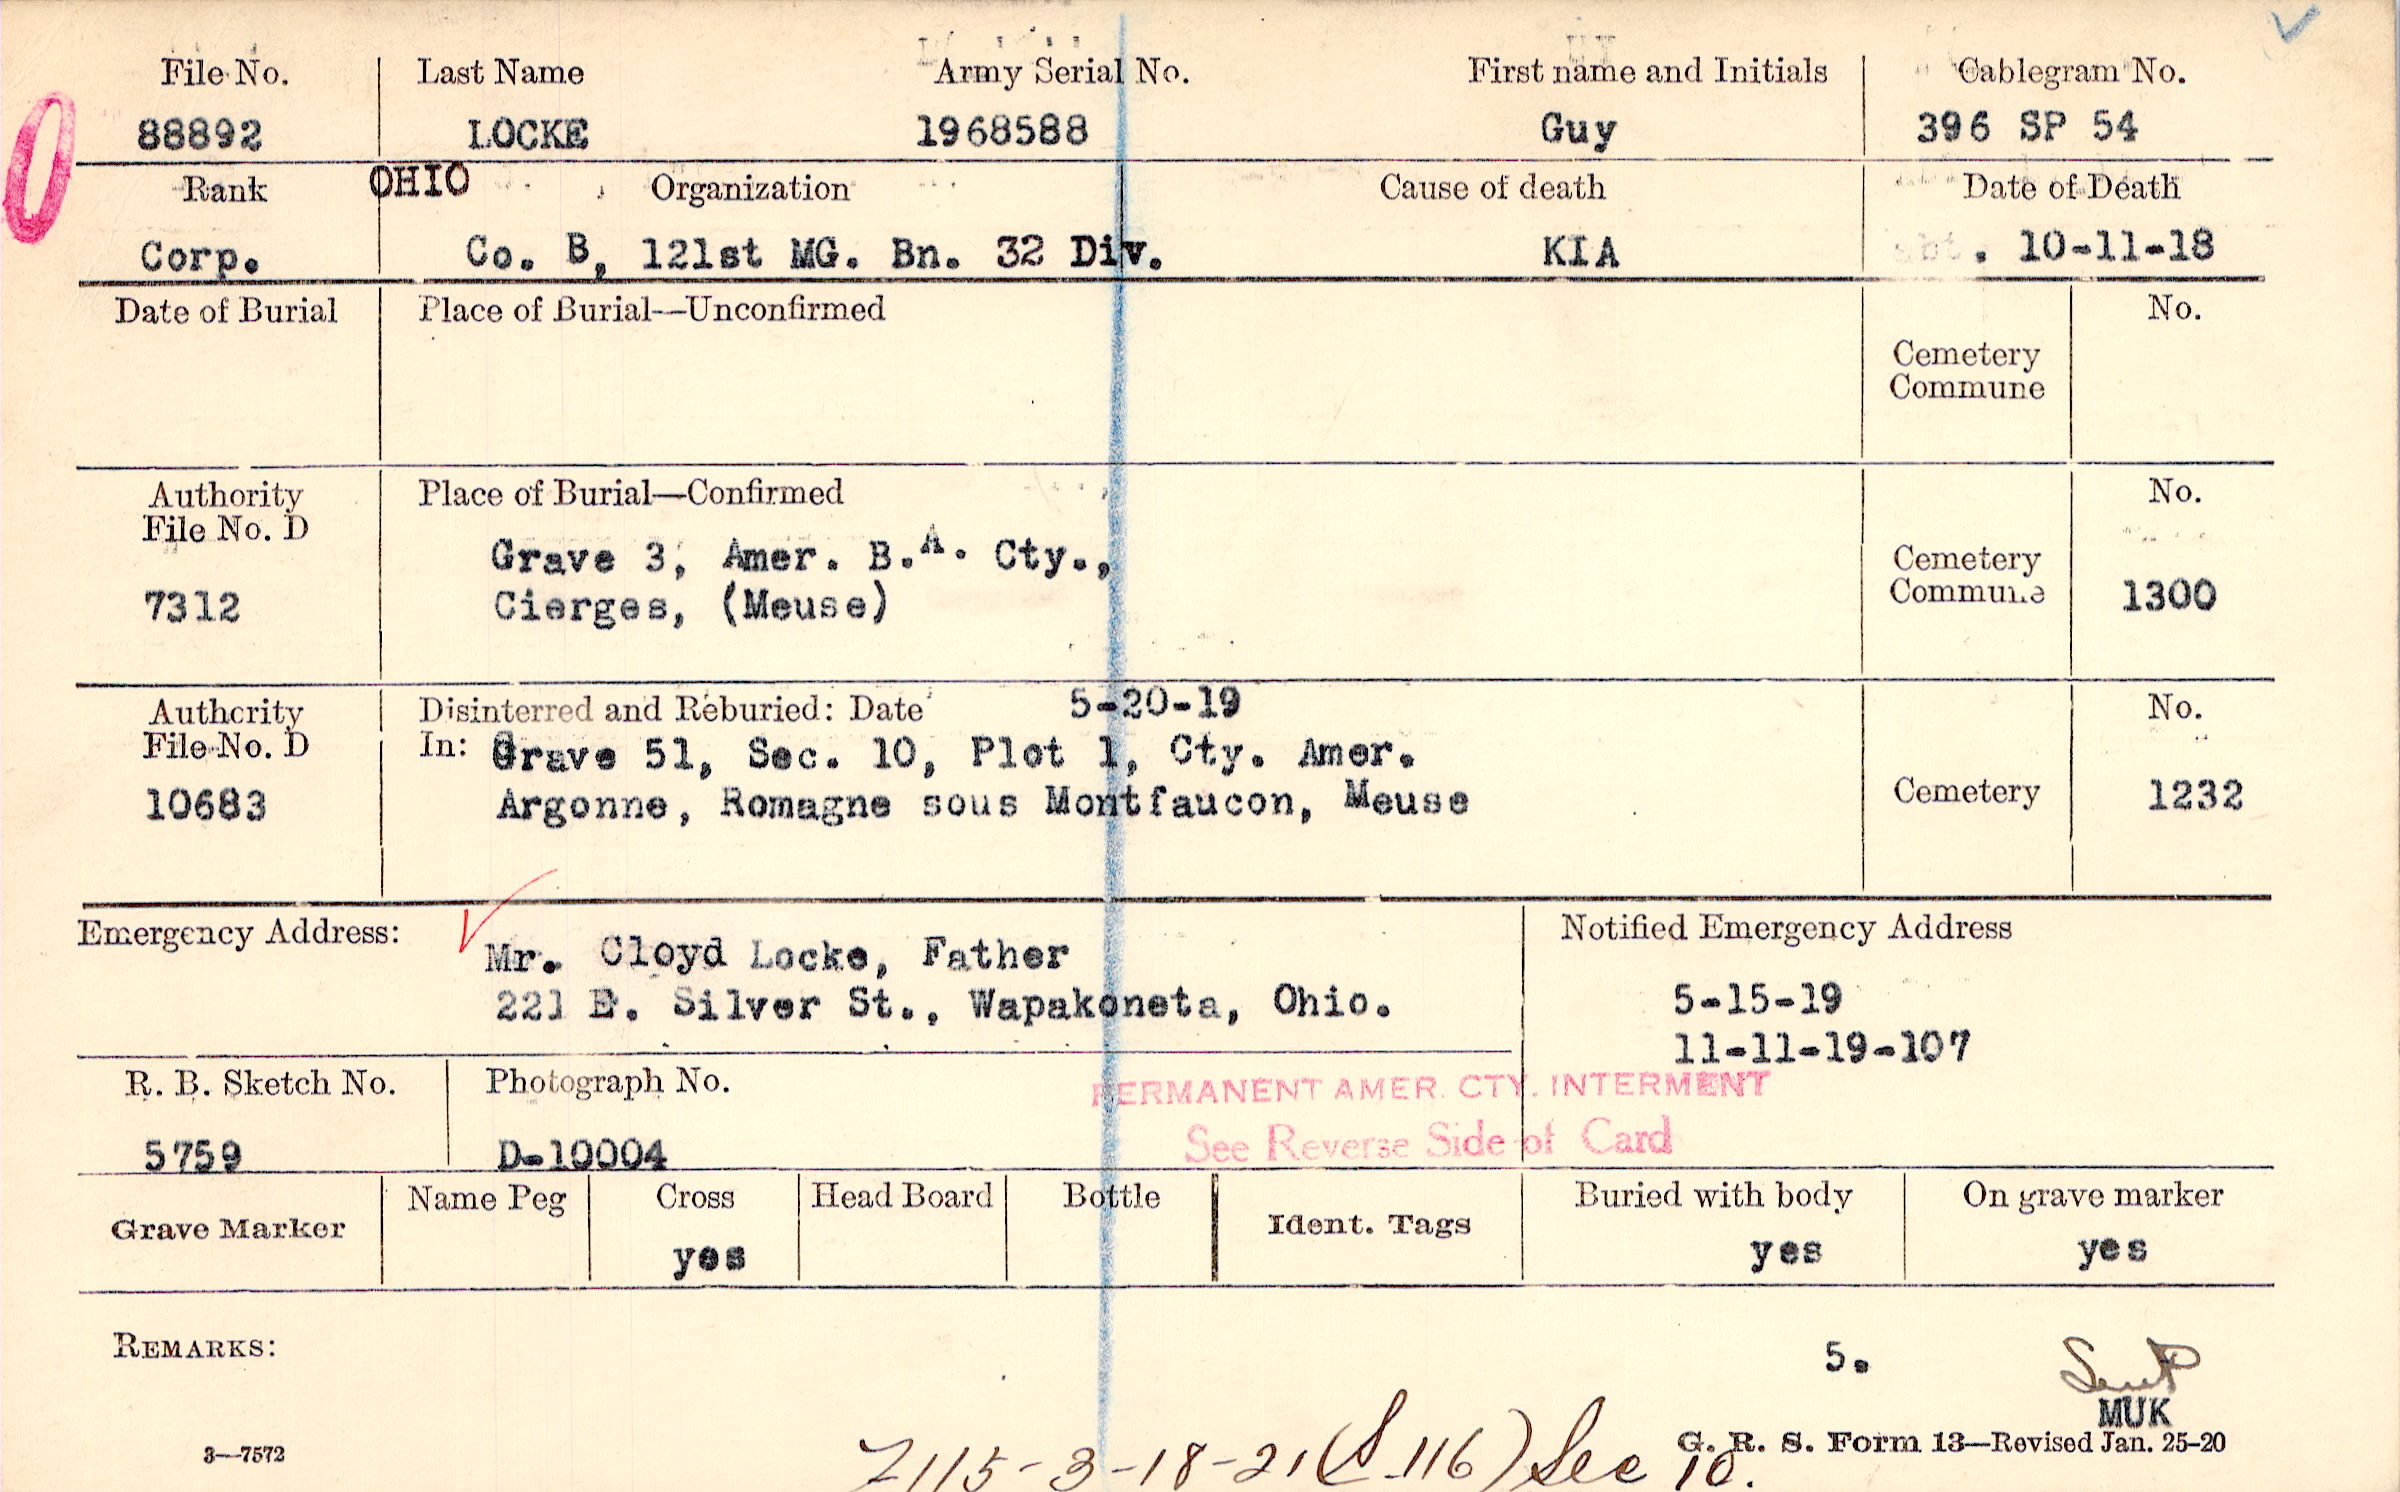 File No. Last Name Army Serial No. First name and Initials Cablegram No.
88892 LOCKE 1968588 Guy 396 SP 54
Rank OHIO Organization Cause of death Date of Death
Corp. Co. B, 121st MG. Bn. 32 Div. KIA . 10-11-18
Date of Burial Place of Burial—Unconfirmed No.
Cemetery
Commune
Authority Place of Burial—Confirmed No.
File No. D
Grave 3, Amer. B.A. Cty., Cemetery
7312 Cierges, (Meuse) Commune 1300
Authority Disinterred and Reburied: Date 5-20-19 No.
File No. D In: Grave 51, Sec. 10, Plot 1, Cty. Amer.
10683 Argonne, Romagne sous Montfaucon, Meuse Cemetery 1232
Emergency Address: Notified Emergency Address
Mr. Cloyd Locke, Father
221 E. Silver St., Wapakoneta, Ohio. 5-15-19
11-11-19-107
R. B. Sketch No. Photograph No. PERMANENT AMER. CTY. INTERMENT
5759 D-10004 See Reverse Side of Card
Grave Marker Name Peg Cross Head Board Bottle Ident. Tags Buried with body On grave marker
yes yes yes
REMARKS: 5.
MUK
3—7572 G. R. S. Form 13—Revised Jan. 25-20
Z115-3-18-21 (S-116) Sec 10.